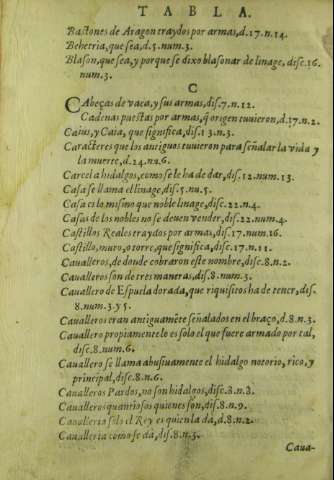 TABLA.
Bastones de Aragon traydos por armas, d.17.n.14.
Behetria, que sea, d.5.num.3.
Blason, que sea, y porque se dixo blasonar de linage, disc.16.
num.3.
C
CAbeças de vaca, y sus armas, dis.7.n.12.
Cadenas puestas por armas, q̃ origen tuuieron, d.17.n.2.
Caius, y Caia, que significa, dis.13.n.3.
Caracteres que los antiguos tuuieron para señalar la vida y
la muerte, d.24.n.6.
Carcel a hidalgos, como se le ha de dar, dis.12.num.13.
Casa se llama el linage, dis.5.nu.5.
Casa es lo mismo que noble linage, disc.22.n.4.
Casas de los nobles no se deuen vender, dis.22.num.4.
Castillos Reales traydos por armas, dis.17.num.16.
Castillo, muro, o torre, que significa, disc.17.n.11.
Caualleros, de donde cobraron este nombre, disc.8.n.2.
Caualleros son de tres maneras, dis.8.num.3.
Cauallero de Espuela dorada, que riquisitos ha de tener, dis.
8.num.3.y 5.
Caualleros eran antiguamẽte señalados en el braço, d.8.n.3.
Cauallero propiamente lo es solo el que fuere armado por tal,
disc.8.num.6.
Cauallero se llama abusiuamente el hidalgo notorio, rico, y
principal, disc.8.n.6.
Caualleros Pardos, no son hidalgos, disc.8.n.8.
Caualleros quantiosos quienes son, dis.8.n.9.
Caualleria solo el Rey es quien la da, d.8.n.2.
Caualleria como se da, dis.8.n.3.
Caua-